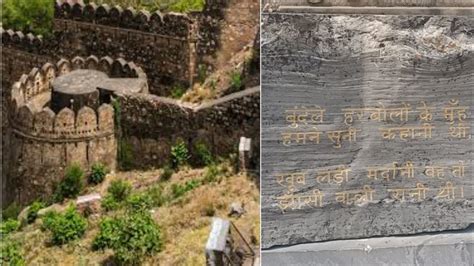 बुंदेले हरबोलों के मुँह
हमने सुनी कहानी थी
खूब लड़ी मर्दानी वह तो
झांसी वाली रानी थी।